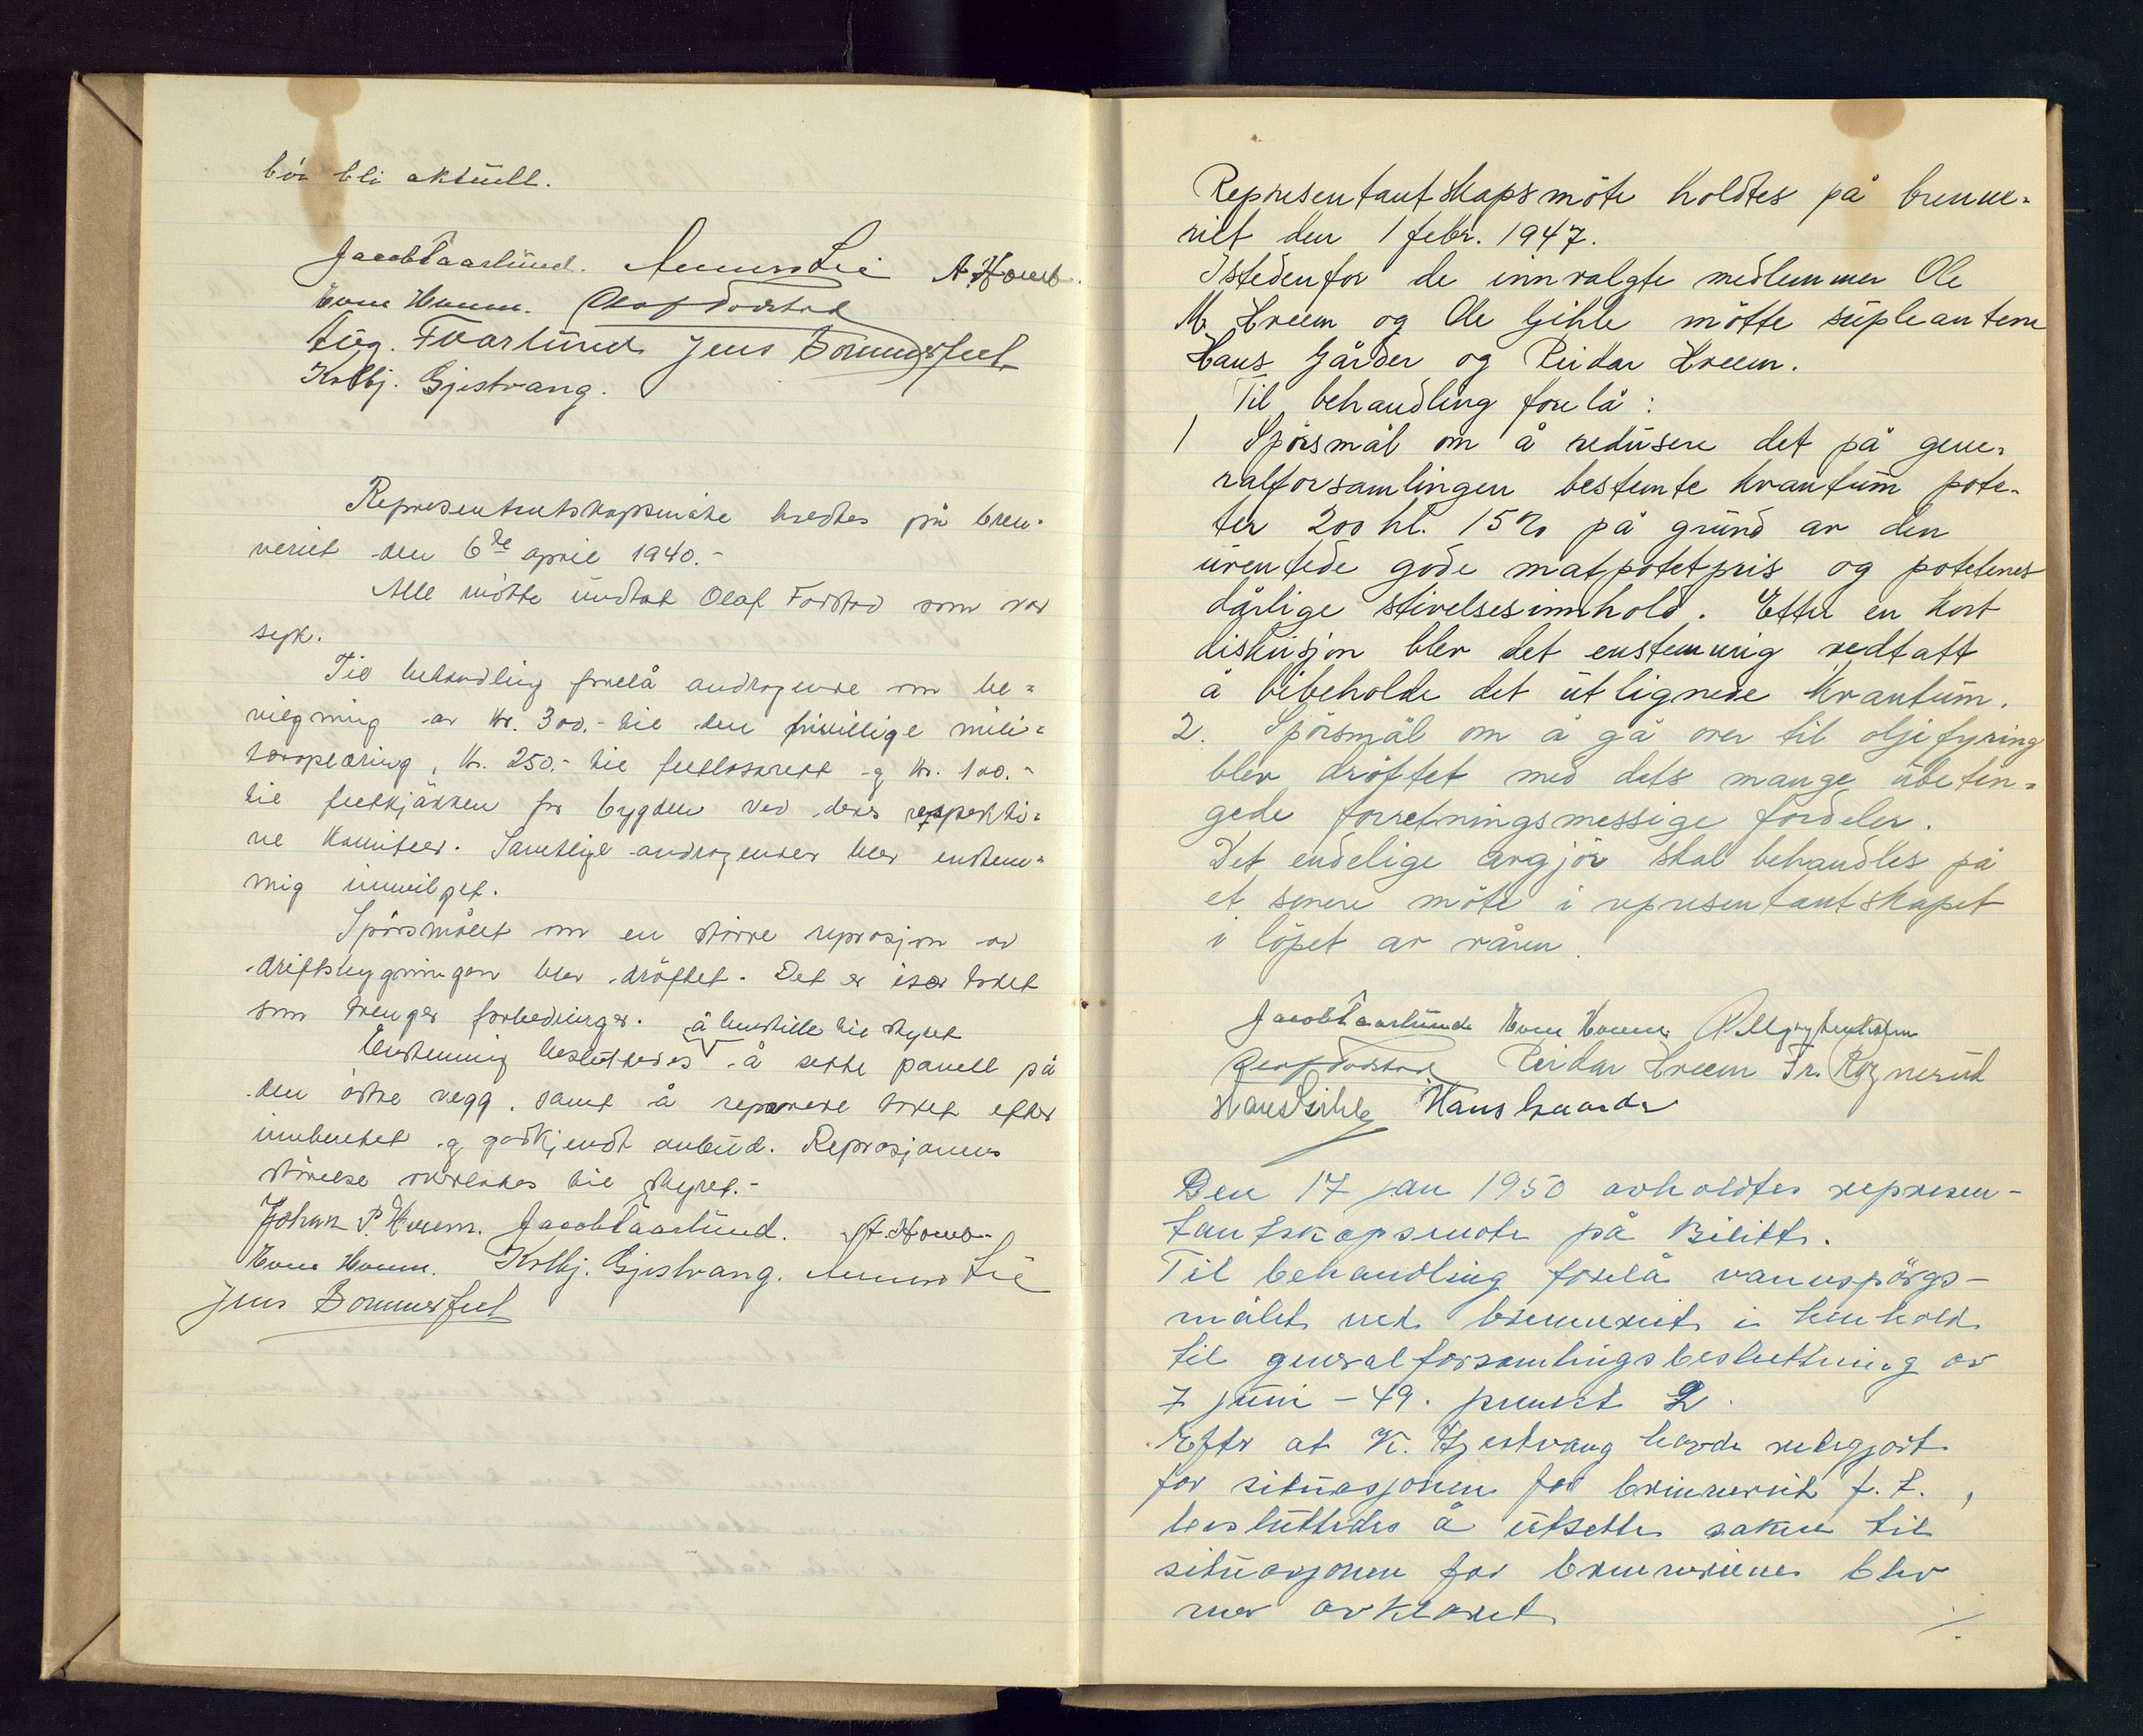 bör bli aktuell.
Jacob Taarlund. A. Homb.
Even Hveem. Olaf Fodstad
Aug. Faarlund Jens Sommerfelt
Kolbj. Gjestvang.
Representantskapsmöte holdtes på bren-
neriet den 6te april 1940.-
Alle mötte undtat Olaf Fodstad som var
syk.
Til behandling forelå andragende om be-
vilgning av kr. 300.- til den frivillige mili-
töropläring, kr. 250.- til feltlasarett og kr. 100.-
til feltkjökken for bygden ved deres respekti-
ve komiteer. Samtlige andragender blev enstem-
mig innvilget.
Spörsmålet om en större reprasjon av
driftsbygningen blev dröftet. Det er især taket
som trenger forbedringer.
å henstille til styret
Enstemmig besluttedes å sette panell på
den östre vegg, samt å reparere taket efter
innhentet og godkjendt anbud. Reprasjonens
störelse overlates til styret.-
Johan P. Hveem. Jacob Taarlund. A. Homb.
Even Hveem. Kolbj. Gjestvang.
Jens Sommerfelt
Representantskapsmöte holdtes på brenne-
riet den 1 febr. 1947.
Istedenfor de innvalgte medlemmer Ole
M. Hveem og Ole Gihle mötte supleantene
Hans Gårder og Reidar Hveem.
Til behandling forelå :
1 Spörsmål om å redusere det på gene-
ralforsamlingen bestemte kvantum pote-
ter 200 hl. 15% på grund av den
uventede gode matpotetpris og potetenes
dårlige stivelsesinnhold. Etter en kort
diskusjon blev det enstemmig vedtatt
å bibeholde det utlignede kvantum.
2. Spörsmål om å gå over til oljefyring
blev dröftet med dets mange ubetin-
gede forretningsmessige fordeler.
Det endelige avgjör skal behandles på
et senere möte i representantskapet
i löpet av våren.
Jacob Taarlund Even Hveem
Olaf Fodstad Reidar Hveem Fr. Rognerud
Hans Gihle Hans Gaarder
Den 17 jan 1950 avholdtes represen-
tantskapsmote på Bilitt.
Til behandling forelå vannspörgs-
målet ved brenneriet i henhold
til generalforsamlingsbesluttning av
7 juni - 49. punkt 2.
Efter at K. Gjestvang havde redegjort
for situasjonen for brenneriet f. t. ,
besluttedes å utsette saken til
situasjonen for brenneriene blev
mer avklaret
./.